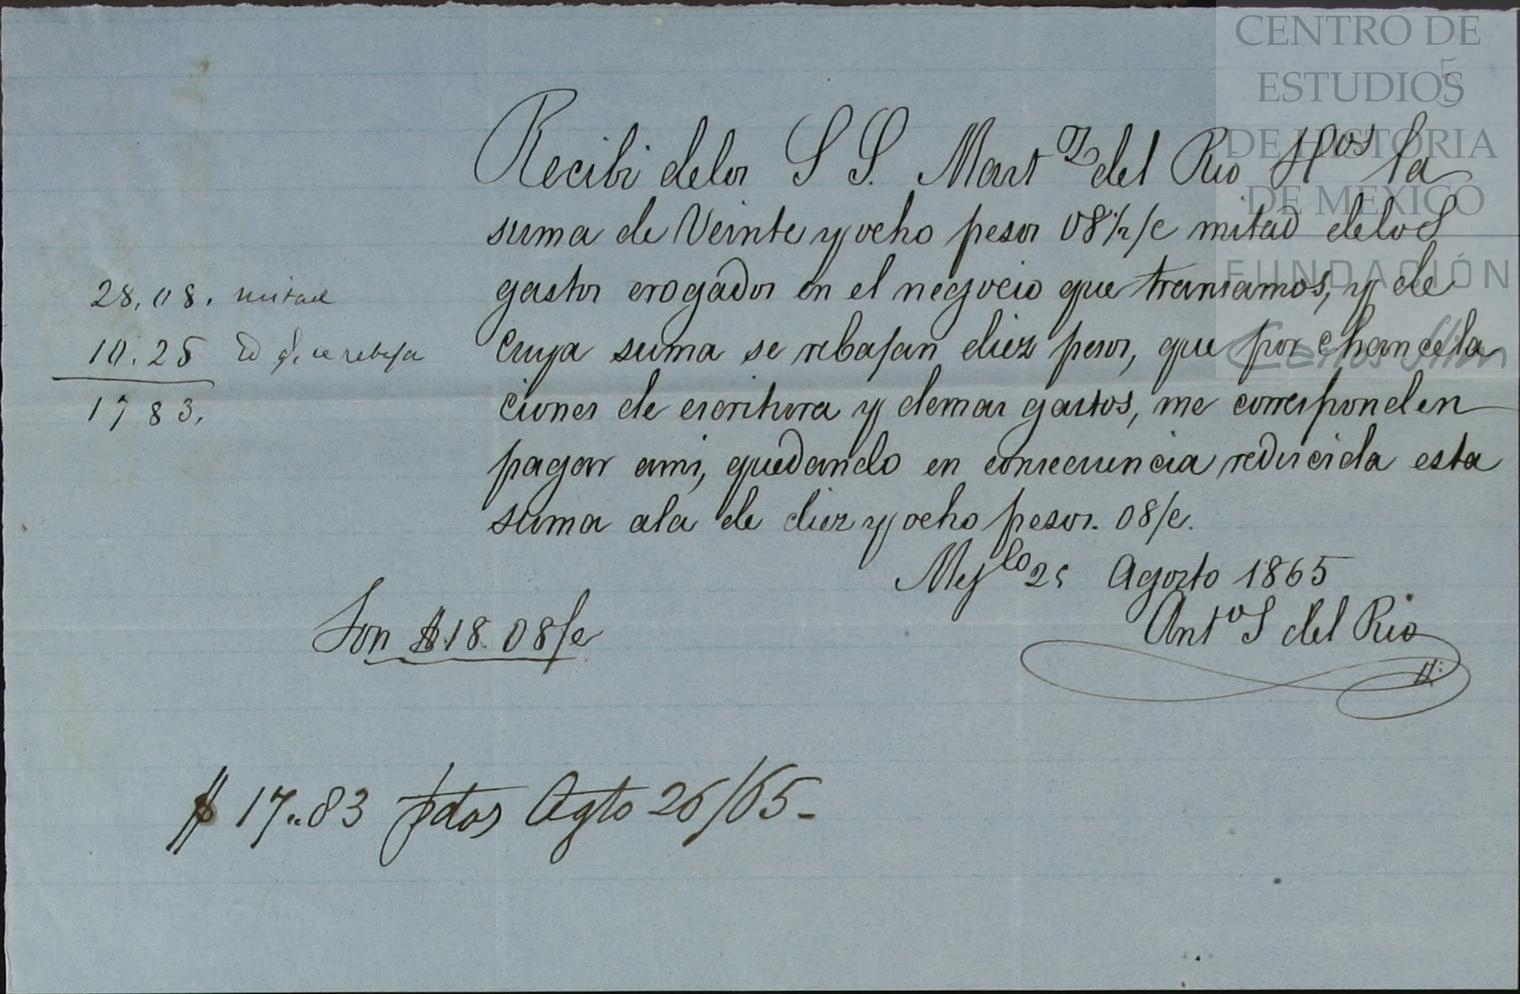 CENTRO DE
ESTUDIOS
DE HISTORIA
DE MEXICO
FUNDACIÓN
Carlos Slim
5
Recibi delos S S. Mart^z del Rio H^os la
suma de Veinte y ocho pesos 08½/c mitad delos
gastos erogados en el negocio que transamos, y de
cuya suma se rebajan diez pesos, que por chancela
ciones de escritura y demas gastos, me corresponden
pagar ami, quedando en consecuencia reducida esta
suma ala de diez y ocho pesos. 08/c.
Mej^co 25 Agosto 1865
Ant^o S del Rio
28.08. mitad
10.25 q. se rebaja
17 83.
Son $18.08/c
$ 17..83 Agto 26/65-